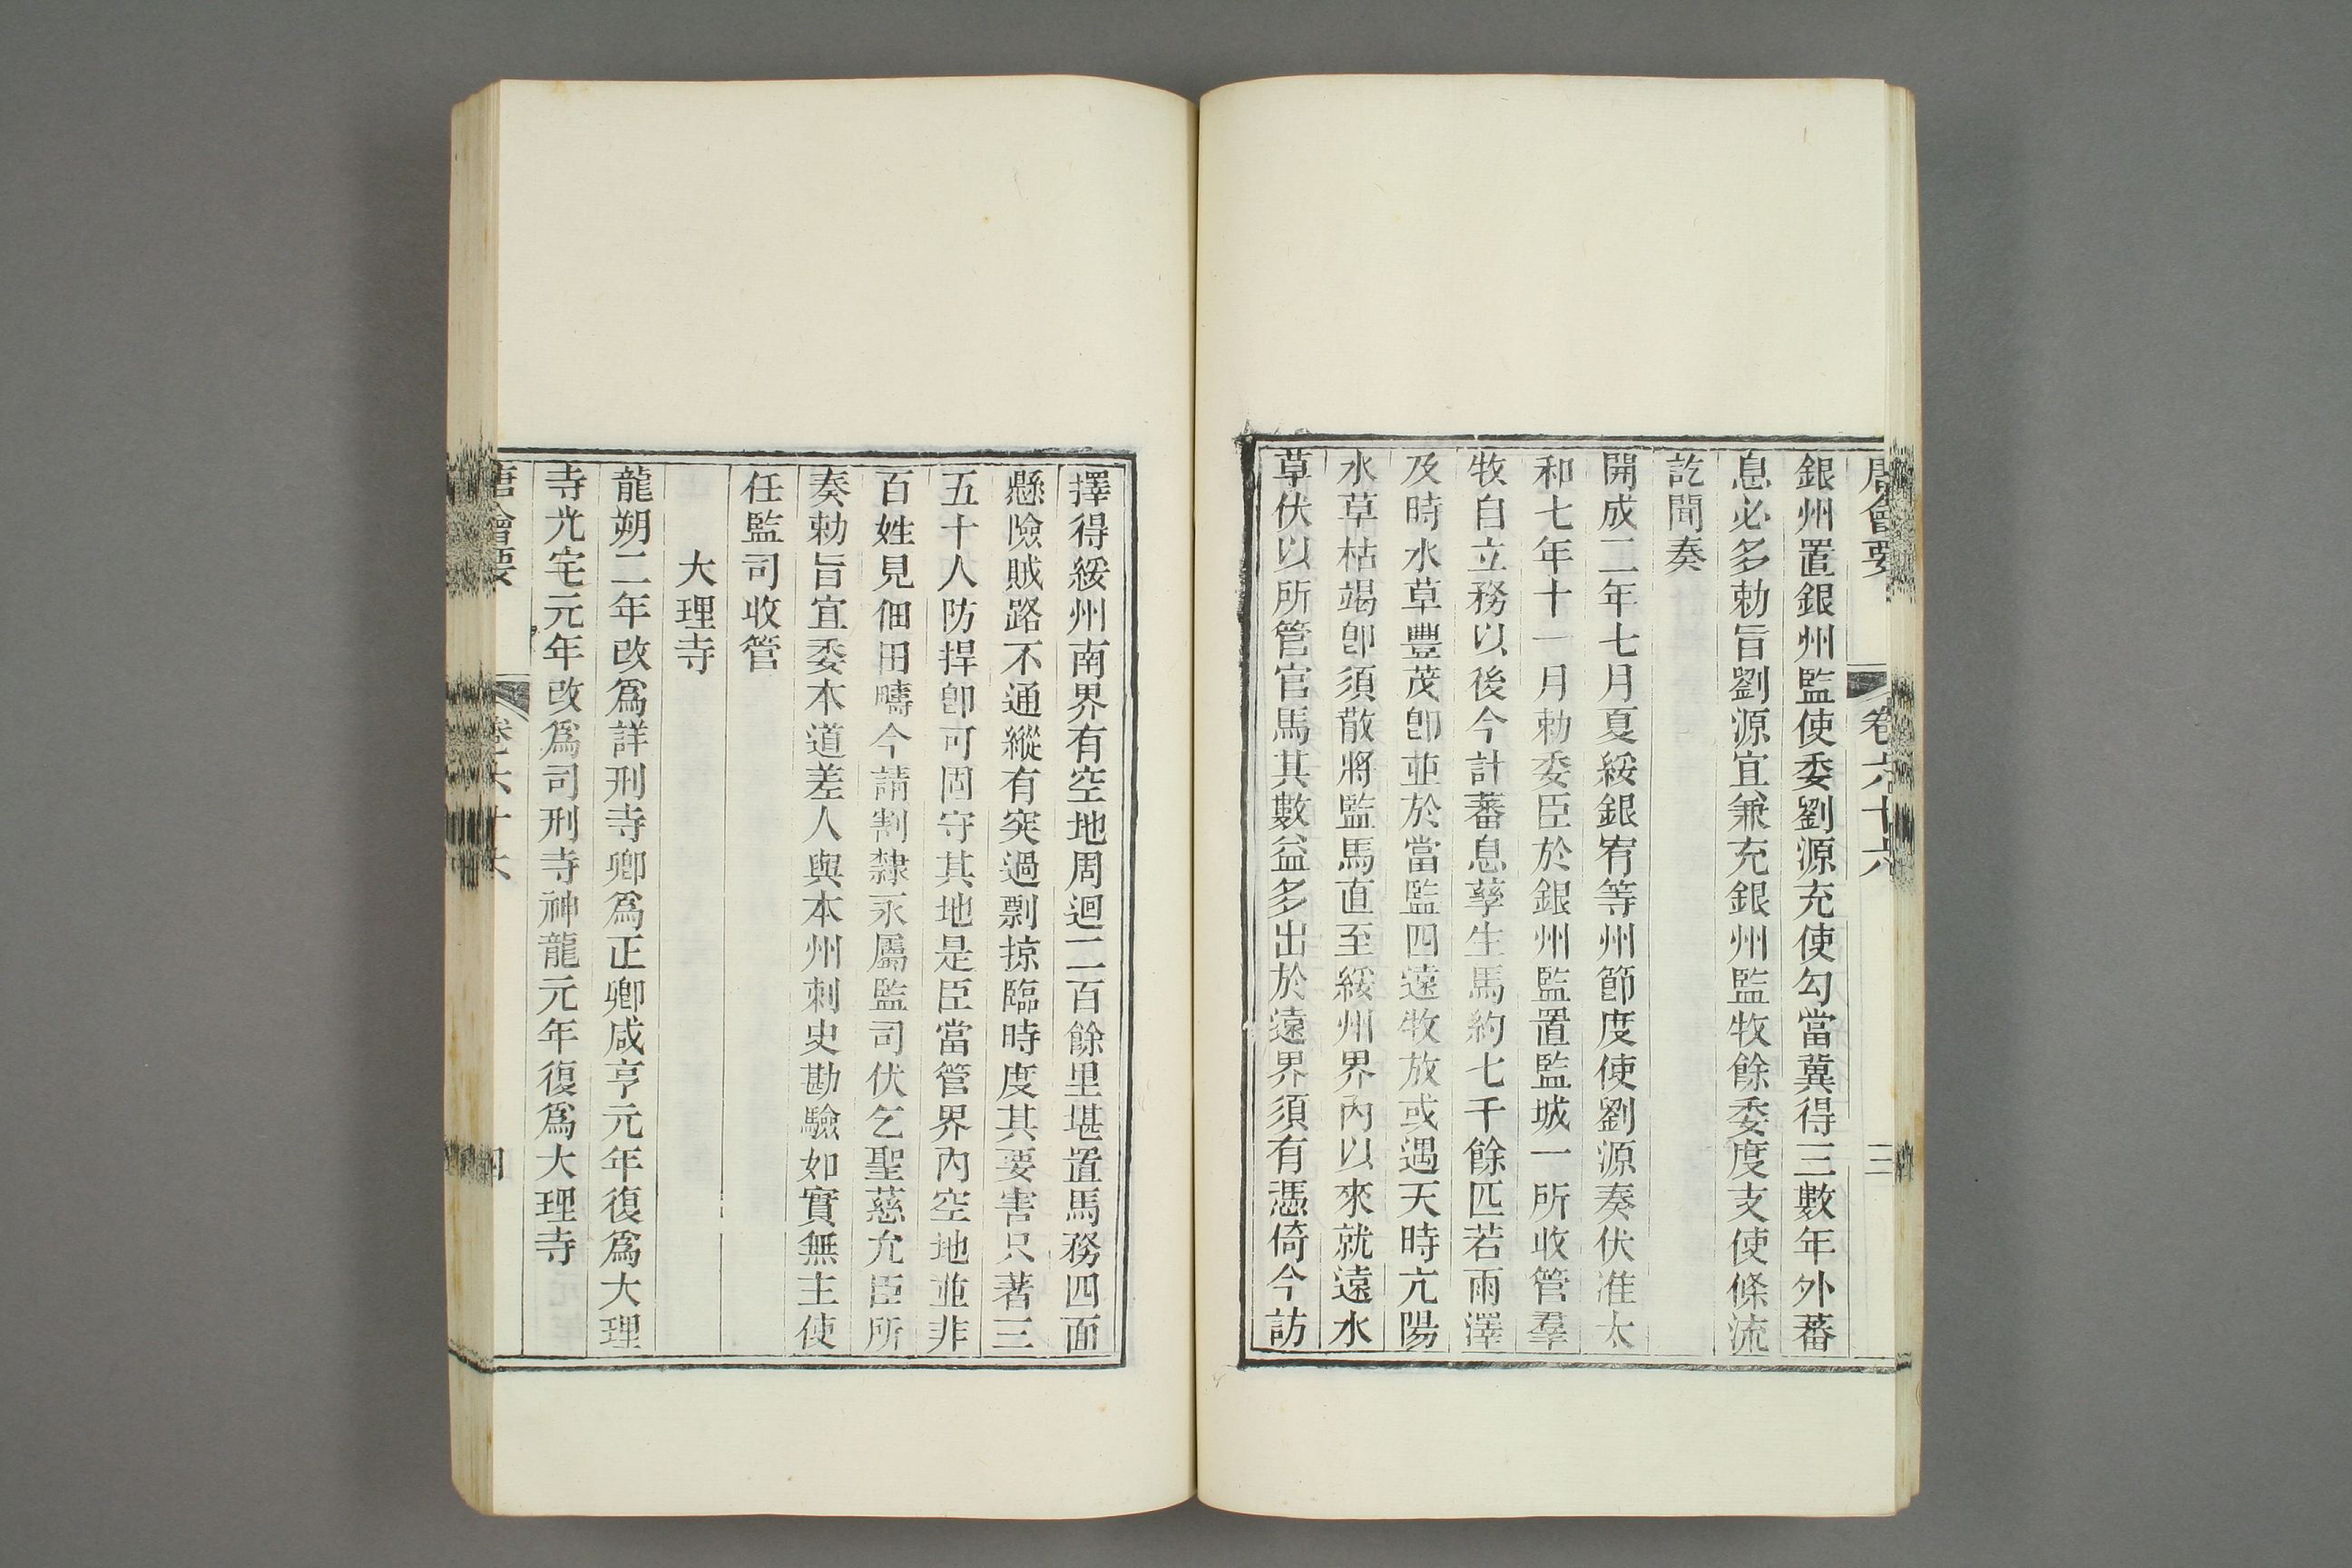 唐會要 卷六十六 三
銀州置銀州監使委劉源充使勾當冀得三數年外蕃
息必多勅旨劉源宜兼充銀州監牧餘委度支使條流
訖聞奏
開成二年七月夏綏銀宥等州節度使劉源奏伏准太
和七年十一月勅委臣於銀州監置監城一所收管羣
牧自立務以後今計蕃息孳生馬約七千餘匹若雨澤
及時水草豐茂卽並於當監四遠牧放或遇天時亢陽
水草枯竭卽須散將監馬直至綏州界內以來就遠水
草伏以所管官馬其數益多出於遠界須有憑倚今訪
擇得綏州南界有空地周迴二百餘里堪置馬務四面
懸險賊路不通縱有突過剽掠臨時度其要害只著三
五十人防捍卽可固守其地是臣當管界內空地並非
百姓見佃田疇今請割隸永屬監司伏乞聖慈允臣所
奏勅旨宜委本道差人與本州刺史勘驗如實無主使
任監司收管
大理寺
龍朔二年改爲詳刑寺卿爲正卿咸亨元年復爲大理
寺光宅元年改爲司刑寺神龍元年復爲大理寺
唐會要 卷六十六 四